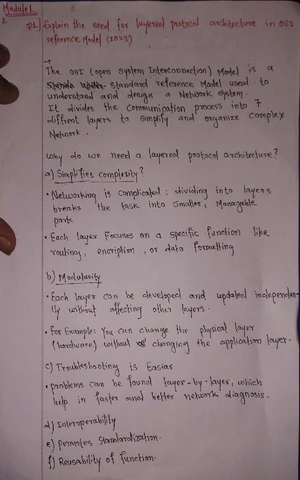 Module 1
1 Q1) Explain the need for layered protocol architecture in OSI
reference Model (2023)
→
The OSI (open System Interconnection) Model is a
standard reference Model used to
understand and design a Network system.
It divides the communication process into 7
diffrent layers to Simplify and organize complex
Network.
Why do we need a layered protocol architecture?
a) Simplifies complexity?
• Networking is complicated; dividing into layers
breaks the task into Smaller, Manageable
parts
• Each layer Focuses on a specific function like
routing, encription, or data formatting
b) Modularity
• Each layer can be developed and updated independen-
tly without affecting other layers.
• For Example: You can change the physical layer
(hardware) without changing the application layer.
c) Troubleshooting is Easiar
• problems can be found layer-by-layer, which
help in faster and better network diagnosis.
d) Interoperability
e) promotes Standardization.
f) Reusability of function.